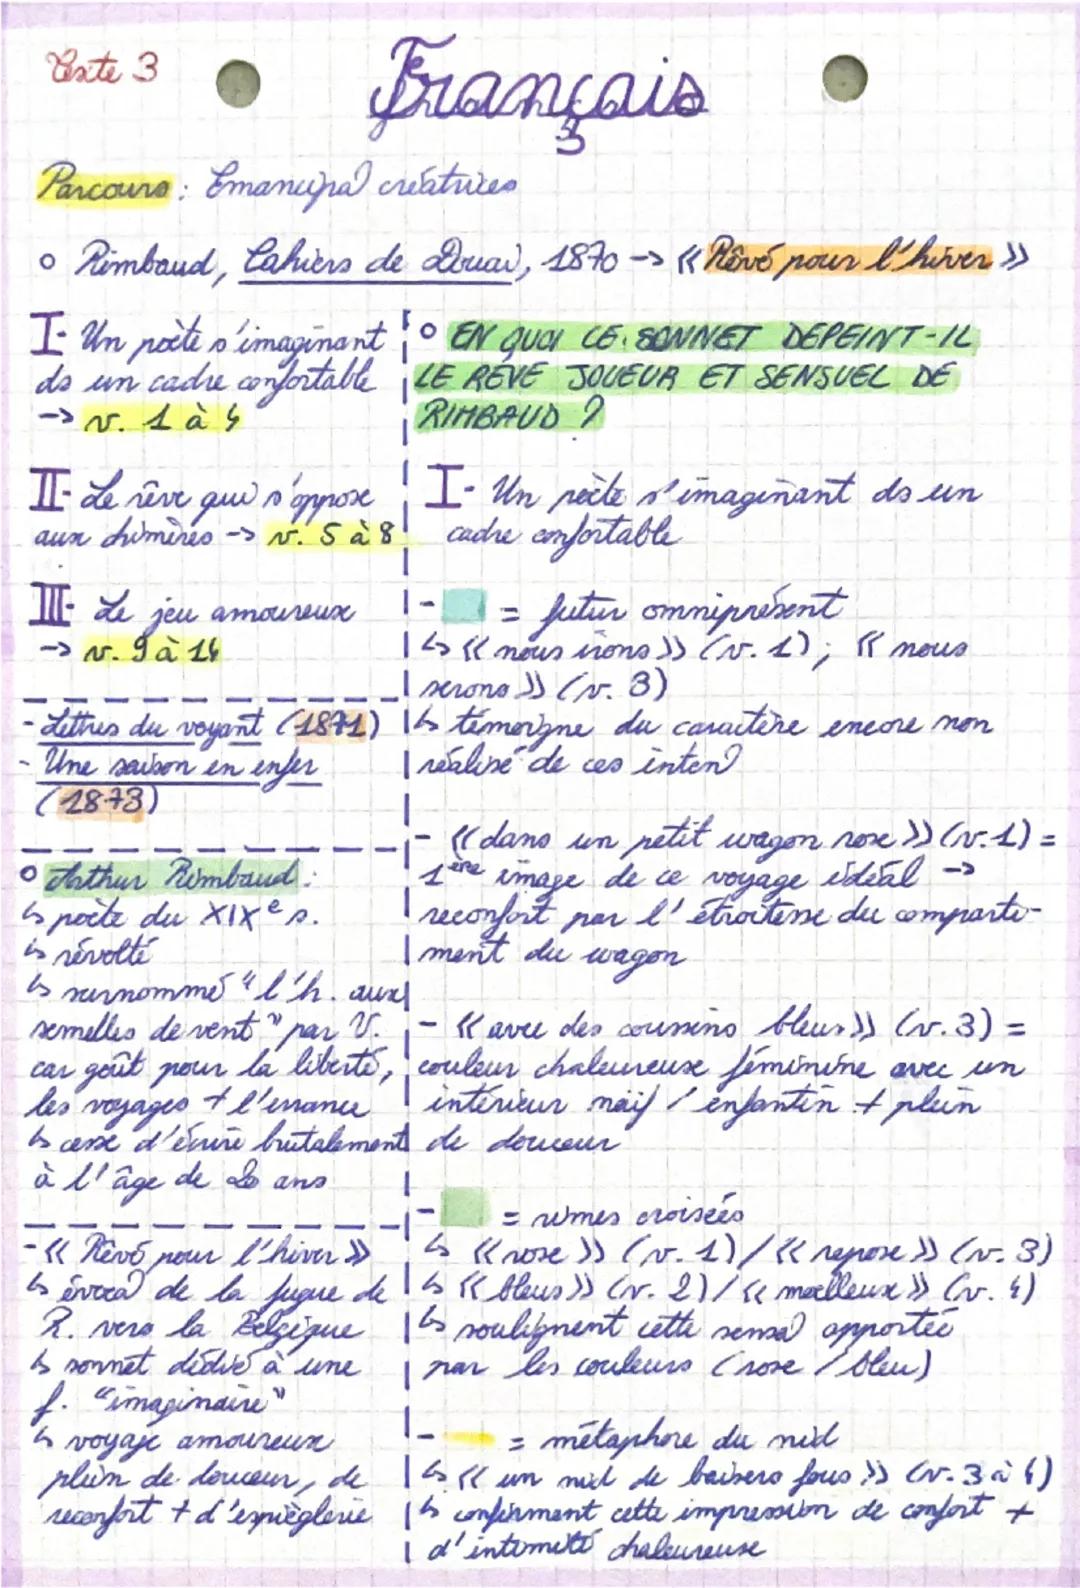 Texte 3
Français
Parcours : Emancipa° créatrices
o Rimbaud, Cahiers de Douai, 1870 -> « Rêvé pour l'hiver »
I- Un poète s'imaginant
ds un cadre confortable
-> v. 1 à 4
II- Le rêve qui s'oppose
aux chimères -> v. 5 à 8
III- Le jeu amoureux
-> v. 9 à 14
- Lettres du voyant (1871)
- Une saison en enfer
(1873)
o Arthur Rimbaud :
↳ poète du XIXe s.
↳ révolté
↳ surnommé "l'h. aux
semelles de vent" par V.
car goût pour la liberté,
les voyages + l'errance
↳ cesse d'écrire brutalement
à l'âge de 20 ans
- « Rêvé pour l'hiver »
↳ évoca° de la fugue de
R. vers la Belgique
↳ sonnet dédié à une
f. "imaginaire"
↳ voyage amoureux
plein de douceur, de
reconfort + d'espièglerie
o EN QUOI CE SONNET DEPEINT-IL
LE REVE JOUEUR ET SENSUEL DE
RIMBAUD ?
I- Un poète s'imaginant ds un
cadre confortable
- = futur omniprésent
↳ « nous irons » (v. 1) ; « nous
serons » (v. 3)
↳ témoigne du caractère encore non
réalisé de ces inten°
- « dans un petit wagon rose » (v.1) =
1ère image de ce voyage idéal ->
reconfort par l'étroitesse du comparti-
ment du wagon
- « avec des coussins bleus » (v.3) =
couleur chaleureuse féminine avec un
intérieur naïf / enfantin + plein
de douceur
- = rimes croisées
↳ « rose » (v. 1) / « repose » (v. 3)
↳ « bleus » (v. 2) / « moelleux » (v. 4)
↳ soulignent cette sensa° apportée
par les couleurs (rose / bleu)
- = métaphore du nid
↳ « un nid de baisers fous » (v. 3 à 4)
↳ confirment cette impression de confort +
d'intimité chaleureuse